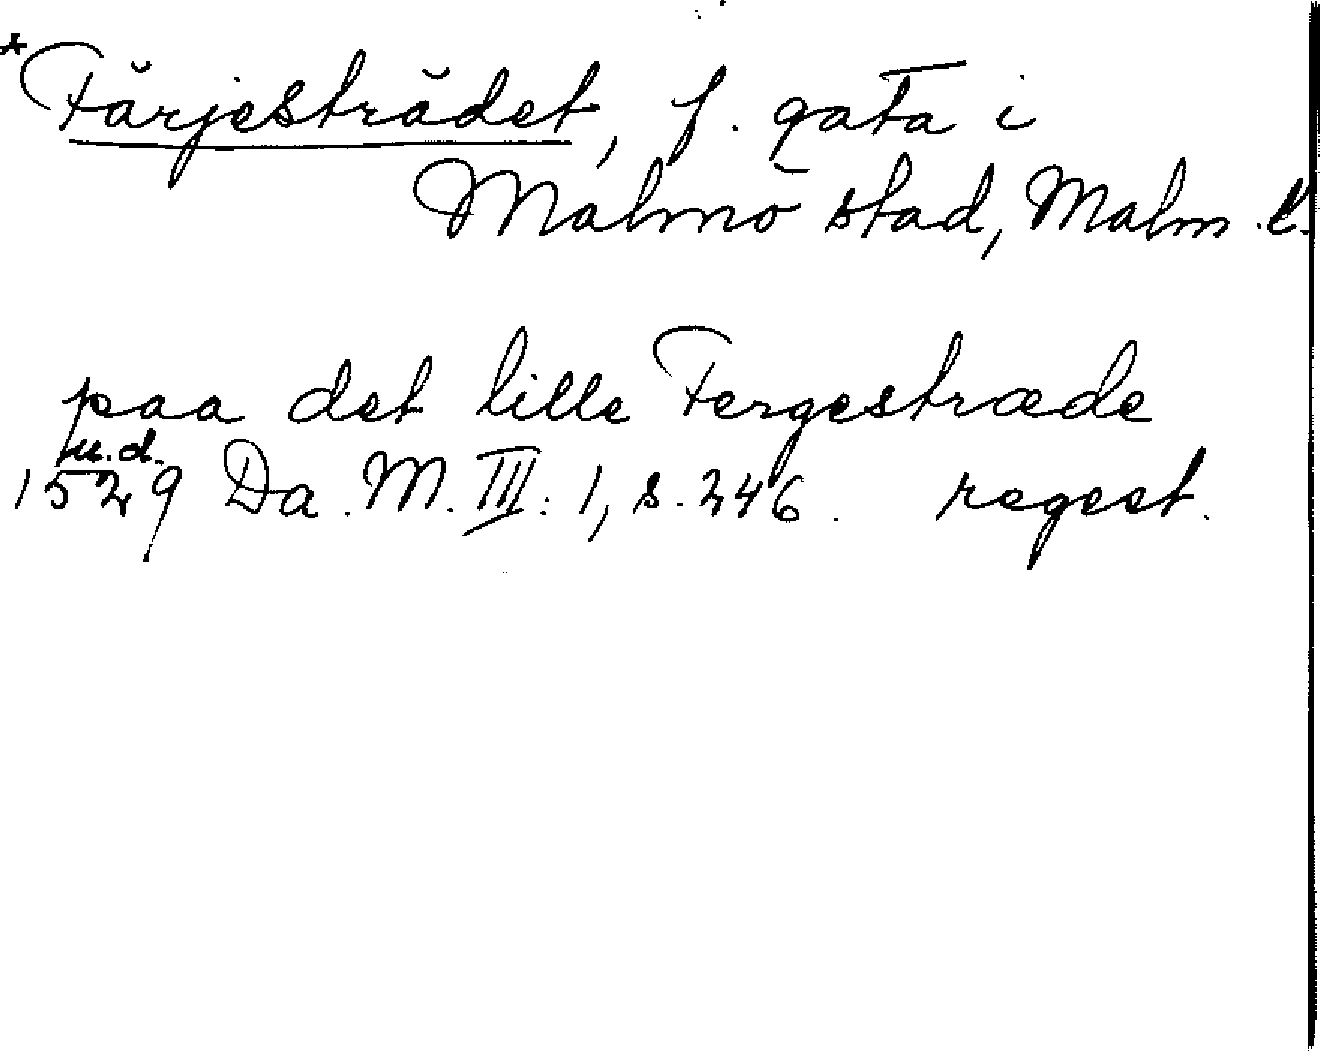 *Färjesträdet, f. gata i
Malmö stad, Malm. l.
paa det lille Fergestræde
u.d.
1529 Da. M. III: 1, s. 246. regest.